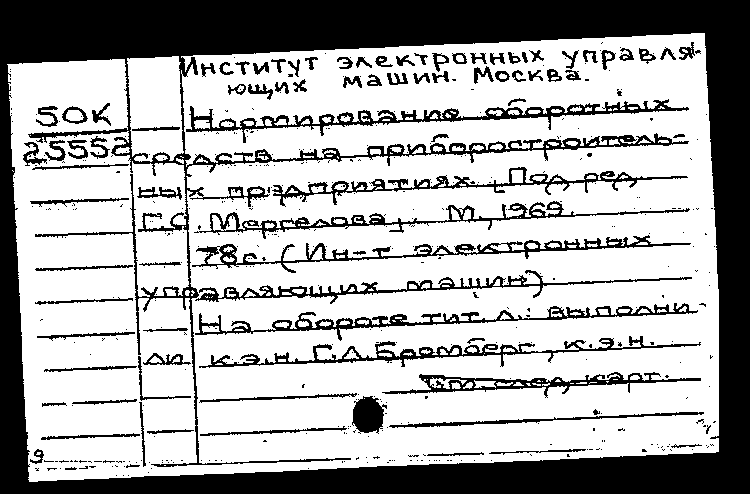 Институт электронных управля-
ющих машин. Москва.
50К Нормирование оборотных
25552 средств на приборостроитель-
ных предприятиях. Под ред.
Г.С. Мергелова, М., 1969.
78с. (Ин-т электронных
управляющих машин)
На обороте тит. л.: выполни-
ли к.э.н. Г.Л. Бромберг, к.э.н.
См. след. карт.
9